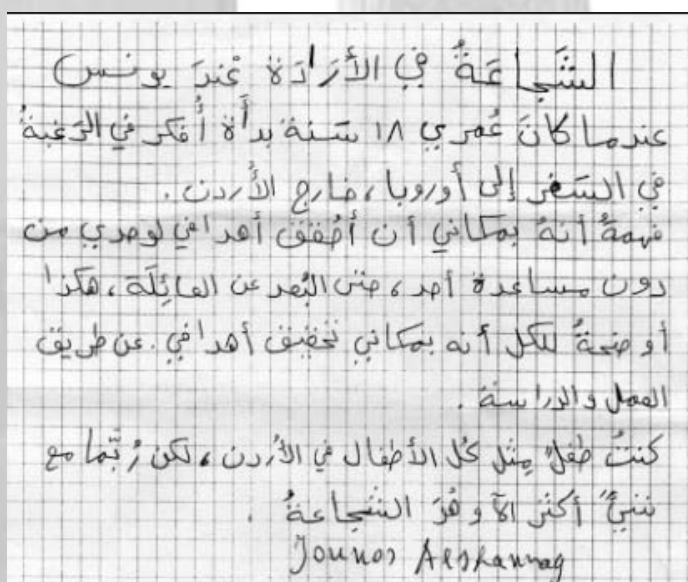 الشَجاعَةُ في الأرَادَة عْندَ يونس
عندما كانَ عُمري ١٨ سَنة بدأَة أُفكر في الرَغبةُ
في السَفر إلى أوروبا، خارج الأُردن.
فهمةُ أنهُ بمكاني أن أُحُقق أهدافي لوحدي من
دون مساعدة أحد، حتى البُعد عن العائِلَة، هكذا
أوضحةُ للكل أنه بمكاني تحقيق أهدافي. عن طريق
العمل والدراسة.
كنتُ طفلً مِثل كُل الأطفال في الأُردن، لكن رُبَّما مع
شيءً أكثر الآ وهُوَ الشجاعةُ.
Jounos